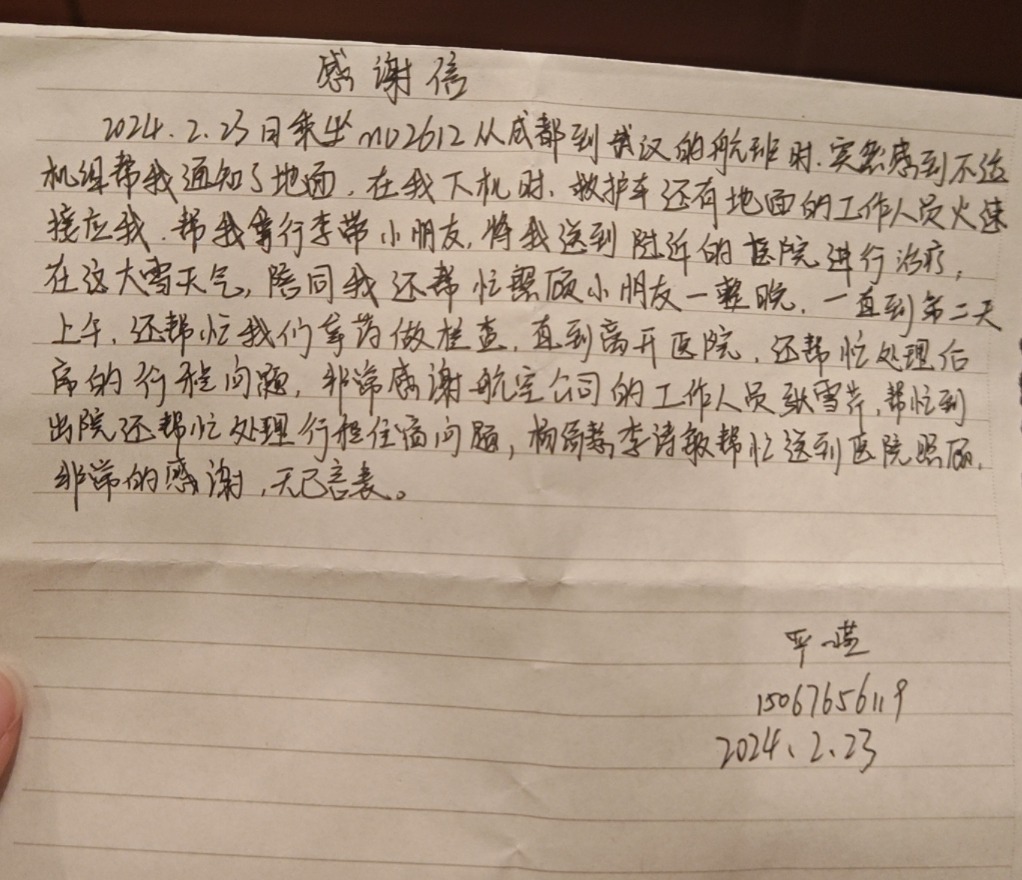 感谢信
2024.2.23日乘坐mu2612从成都到武汉的航班时.突然感到不适
机组帮我通知了地面.在我下机时.救护车还有地面的工作人员火速
接应我.帮我拿行李带小朋友,将我送到附近的医院进行治疗,
在这大雪天气,陪同我还帮忙照顾小朋友一整晚.一直到第二天
上午,还帮忙我们拿药做检查.直到离开医院.还帮忙处理后
序的行程问题,非常感谢航空公司的工作人员耿雪芹,帮忙到
出院还帮忙处理行程住宿问题,杨 李诗敏帮忙送到医院照顾.
非常的感谢,无已言表。
15067656119
2024、2、23